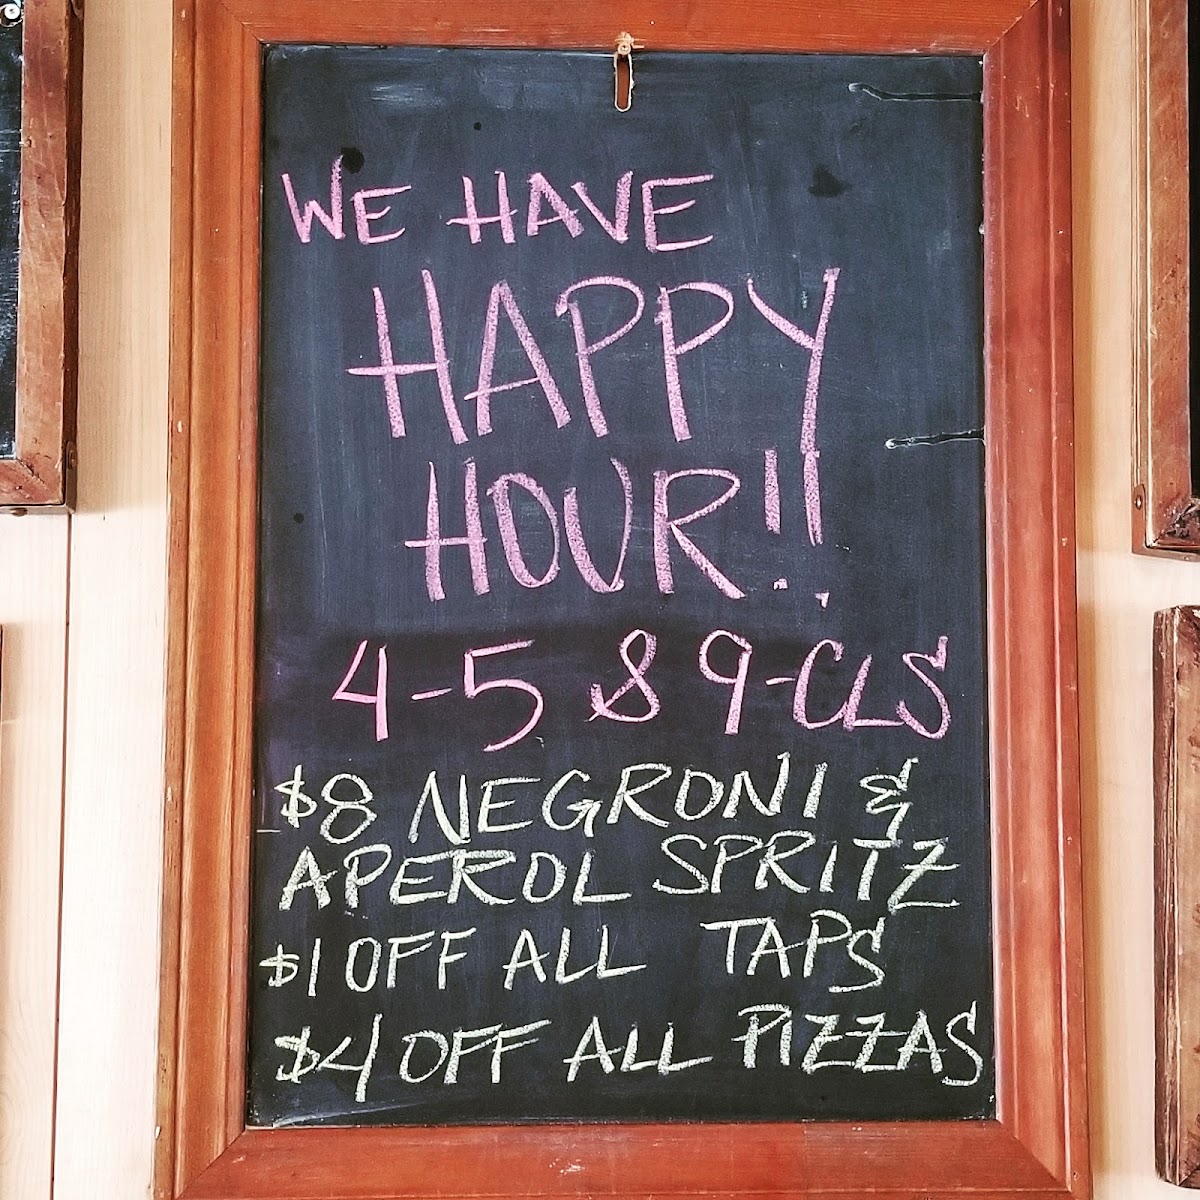 WE HAVE
HAPPY
HOUR!!
4-5 & 9-CLS
$8 NEGRONI &
APEROL SPRITZ
$1 OFF ALL TAPS
$4 OFF ALL PIZZAS